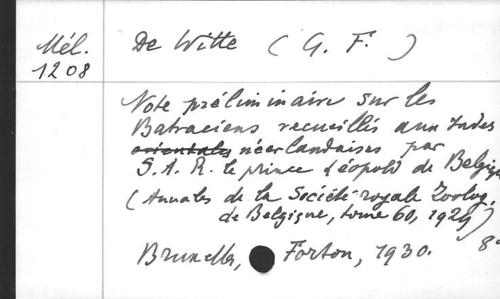 Mél.
1208
De Witte (G. F.)
Note préliminaire sur les
Batraciens recueillis aux Indes
orientales néerlandaises par
S. A. R. le prince Léopold de Belgique
(Annales de la Société royale Zoolog.
de Belgique, tome 60, 1929)
Bruxelles, Forton, 1930. 8°